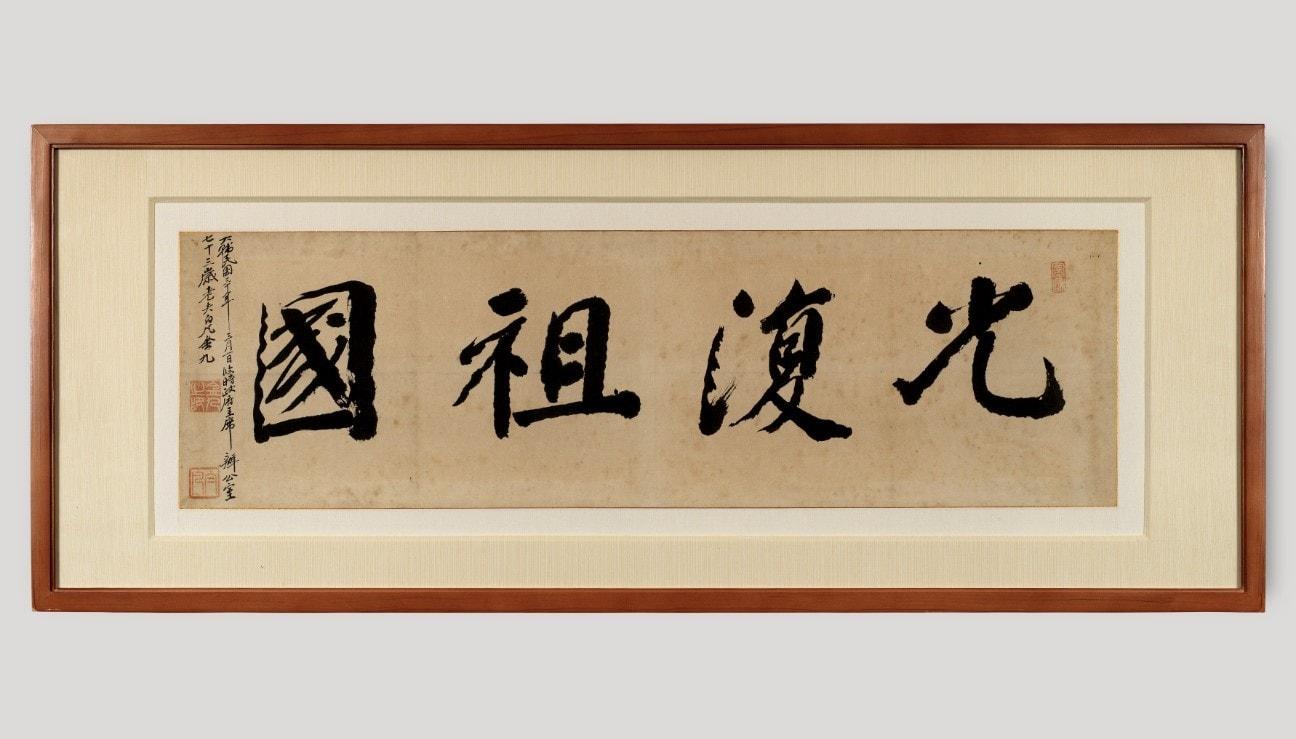 光復祖國
大韓民國三十年三月一日臨時政府主席辦公室
七十三歲老夫白凡金九
金九之印
白凡